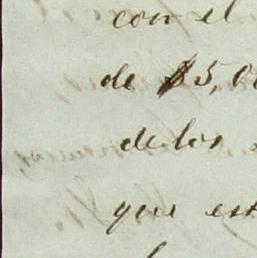 con el
de $5,00
de los
que est